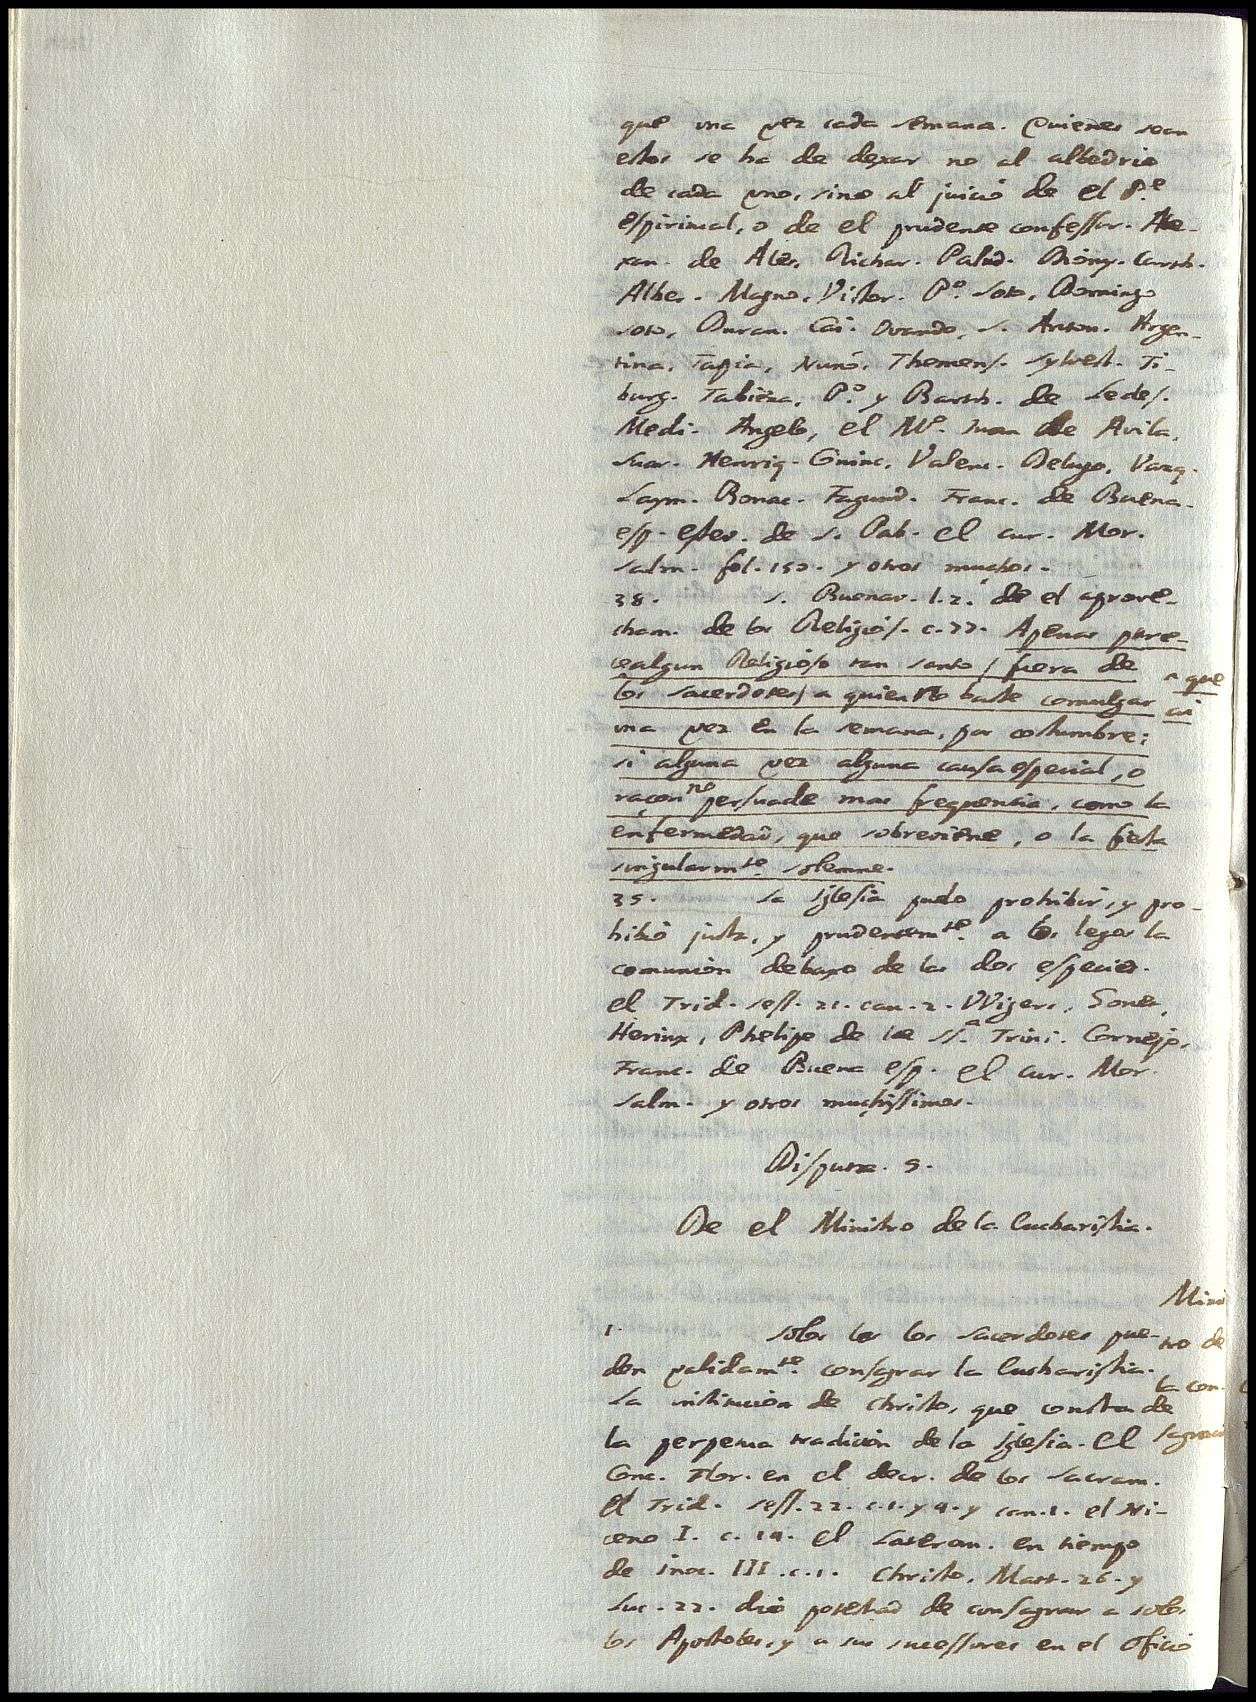 que una vez cada semana. Quienes sean
estos se ha de dexar no al albedrio
de cada uno, sino al juicio de el P.e
espiritual, o de el prudente confessor. Ale-
xan. de Ales, Richar. Palud. Dionys. Carth.
Alber. Magno, Victor. P.o Soto, Domingo
Soto, Duran. Cai. Ovando, S. Anton. Argen-
tina, Tapia, Nuño, Themens. Sylvest. Ti-
burg. Tabiena, P.o y Barth. de Ledes.
Medi. Angelo, el M.o Juan de Avila,
Suar. Henriq. Coninc. Valenc. Vazq.
Laym. Bonac. Fagund. Franc. de Buena-
esp. de S. Pab. el cur. Mor.
Salm. fol. 150. y otros muchos.
38. S. Buenav. l. 2. de el aprove-
cham. de los Religios. c. 77. Apenas pare-
ce algun Religioso tan santo / fuera de
los sacerdotes / a quien no baste comulgar
una vez en la semana, por costumbre;
a que
si
si alguna vez alguna causa especial, o
racon no persuade mas frequentia, como la
enfermedad, que sobreviene, o la fiesta
singularm.te solemne.
39. La Iglesia pudo prohibir, y pro-
hibió justa, y prudentem.te a los legos la
comunión debaxo de las dos especies.
el Trid. sess. 21. can. 2. VVigers, Sonet,
Herinx, Phelipe de la SS.a Trini. Cornejo,
Franc. de Buena esp. el cur. Mor.
Salm. y otros muchissimos.
Disputa. 5.
De el Ministro de la Eucharistia.
Minis
tro de
la con-
sagraci
1. Solos los sacerdotes pue-
den validam.te consagrar la Eucharistia.
La institución de Christo, que consta de
la perpetua tradición de la Iglesia. el
Conc. Flor. en el decr. de los sacram.
el Trid. sess. 22. c. 1. y 4. y can. 1. el Ni-
ceno I. c. 14. el Lateran. en tiempo
de Inoc. III. c. 1. Christo, Matt. 26. y
Luc. 22. dió potestad de consagrar a solos
los Apostoles, y a sus sucessores en el oficio